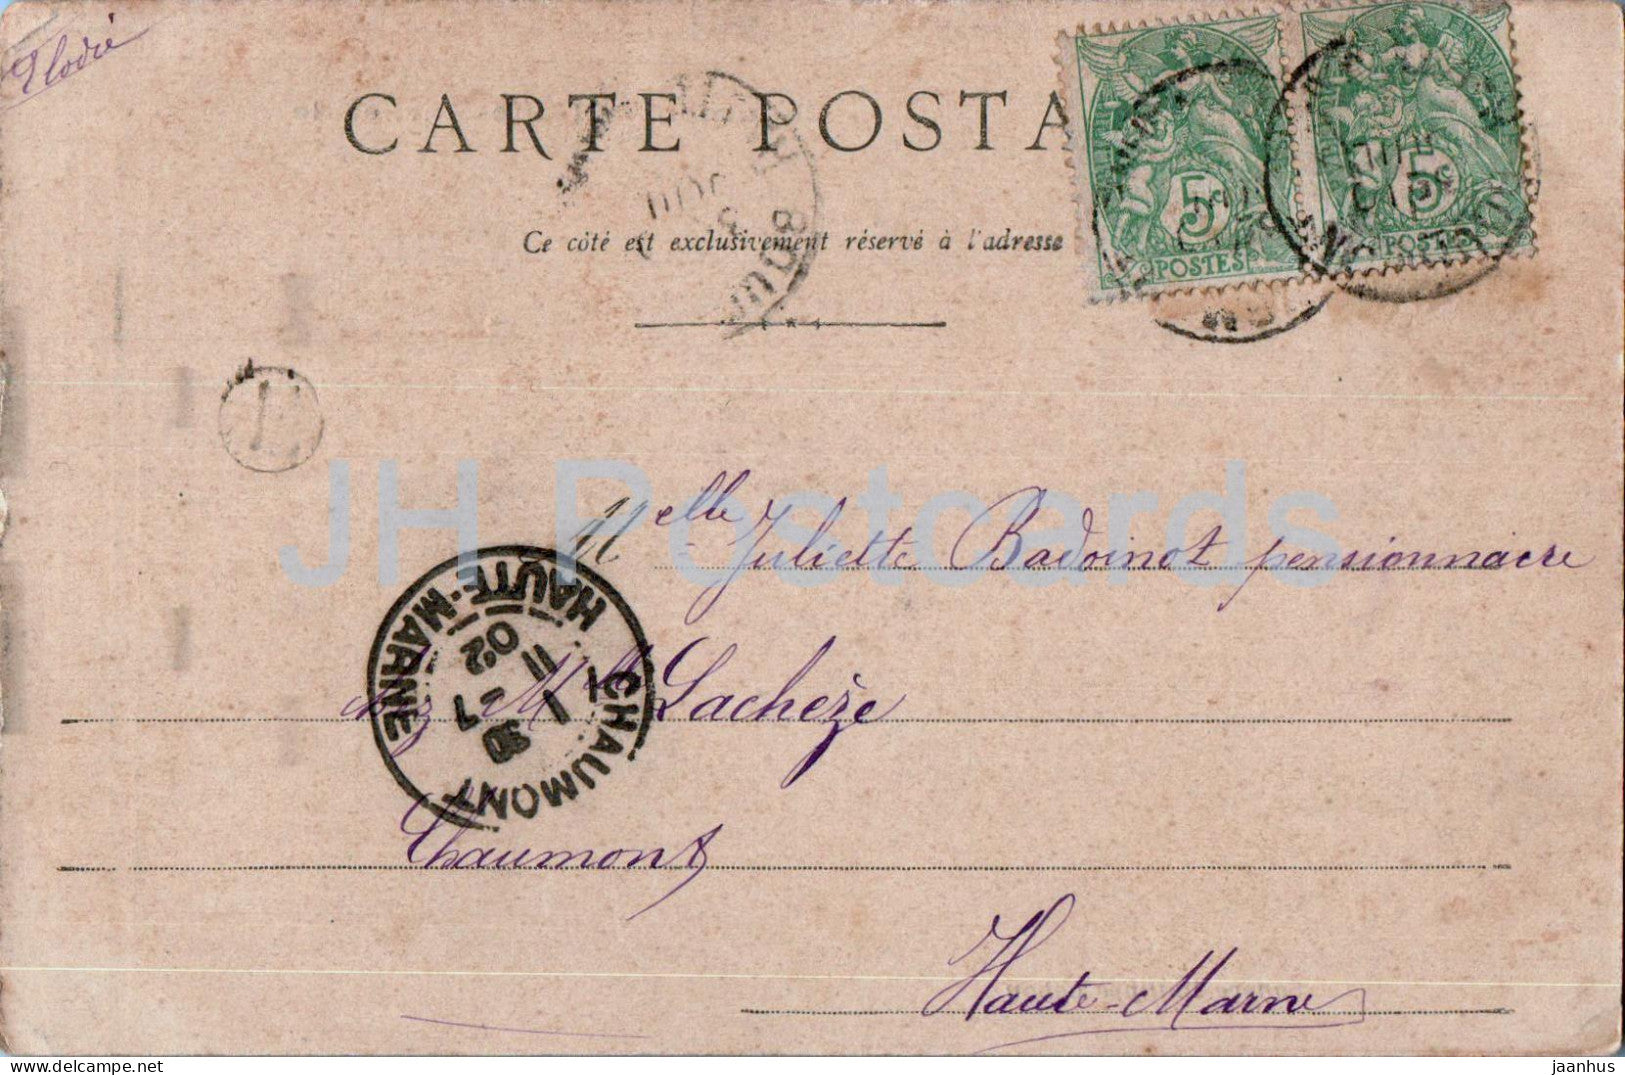 Elodie
CARTE POSTA
Ce côté est exclusivement réservé à l'adresse
5
POSTES
5
POSTES
JH Postcards
Melle Juliette Badoinot pensionnaire
chez Melle Lachèze
Chaumont
Haute-Marne
CHAUMONT
HAUTE-MARNE
30
7
02
jaanhus
delcampe.net